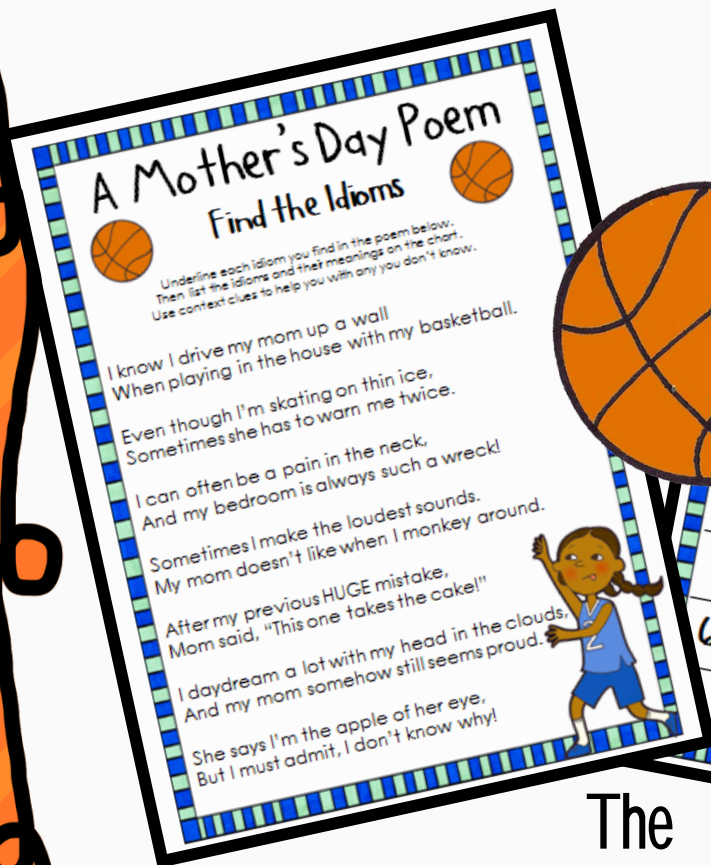 A Mother's Day Poem
Find the Idioms
Underline each idiom you find in the poem below.
Then list the idioms and their meanings on the chart.
Use context clues to help you with any you don't know.
I know I drive my mom up a wall
When playing in the house with my basketball.
Even though I'm skating on thin ice,
Sometimes she has to warn me twice.
I can often be a pain in the neck,
And my bedroom is always such a wreck!
Sometimes I make the loudest sounds.
My mom doesn't like when I monkey around.
After my previous HUGE mistake,
Mom said, "This one takes the cake!"
I daydream a lot with my head in the clouds,
And my mom somehow still seems proud.
She says I'm the apple of her eye,
But I must admit, I don't know why!
2
The